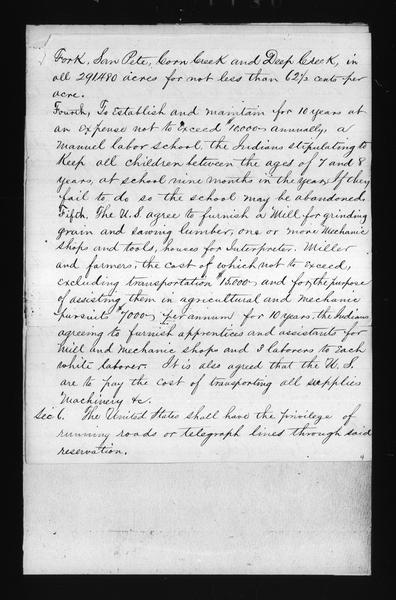 Fork, San Pete, Corn Creek and Deep Creek, in
all 291480 acres for not less than 62½ cents per
acre.
Fourth, To establish and maintain for 10 years at
an expense not to exceed $10000 annually, a
manuel labor school, the Indians stipulating to
Keep all children between the ages of 7 and 8
years, at school nine months in the year. If they
fail to do so the school may be abandoned.
Fifth, The U.S. agree to furnish a Mill for grinding
grain and sawing lumber, one or more Mechanic
shops and tools, houses for Interpreter, Miller
and farmers; the cost of which not to exceed,
excluding transportation $15.000, and for the purpose
of assisting them in agricultural and mechanic
pursuits $7000, per annum for 10 years, the Indians
agreeing to furnish apprentices and assistants for
mill and mechanic shops and 3 laborers to each
white laborer. It is also agreed that the U.S.
are to pay the cost of transporting all supplies
Machinery &c.
Sec 6. The United States shall have the privilege of
running roads or telegraph lines through said
reservation.